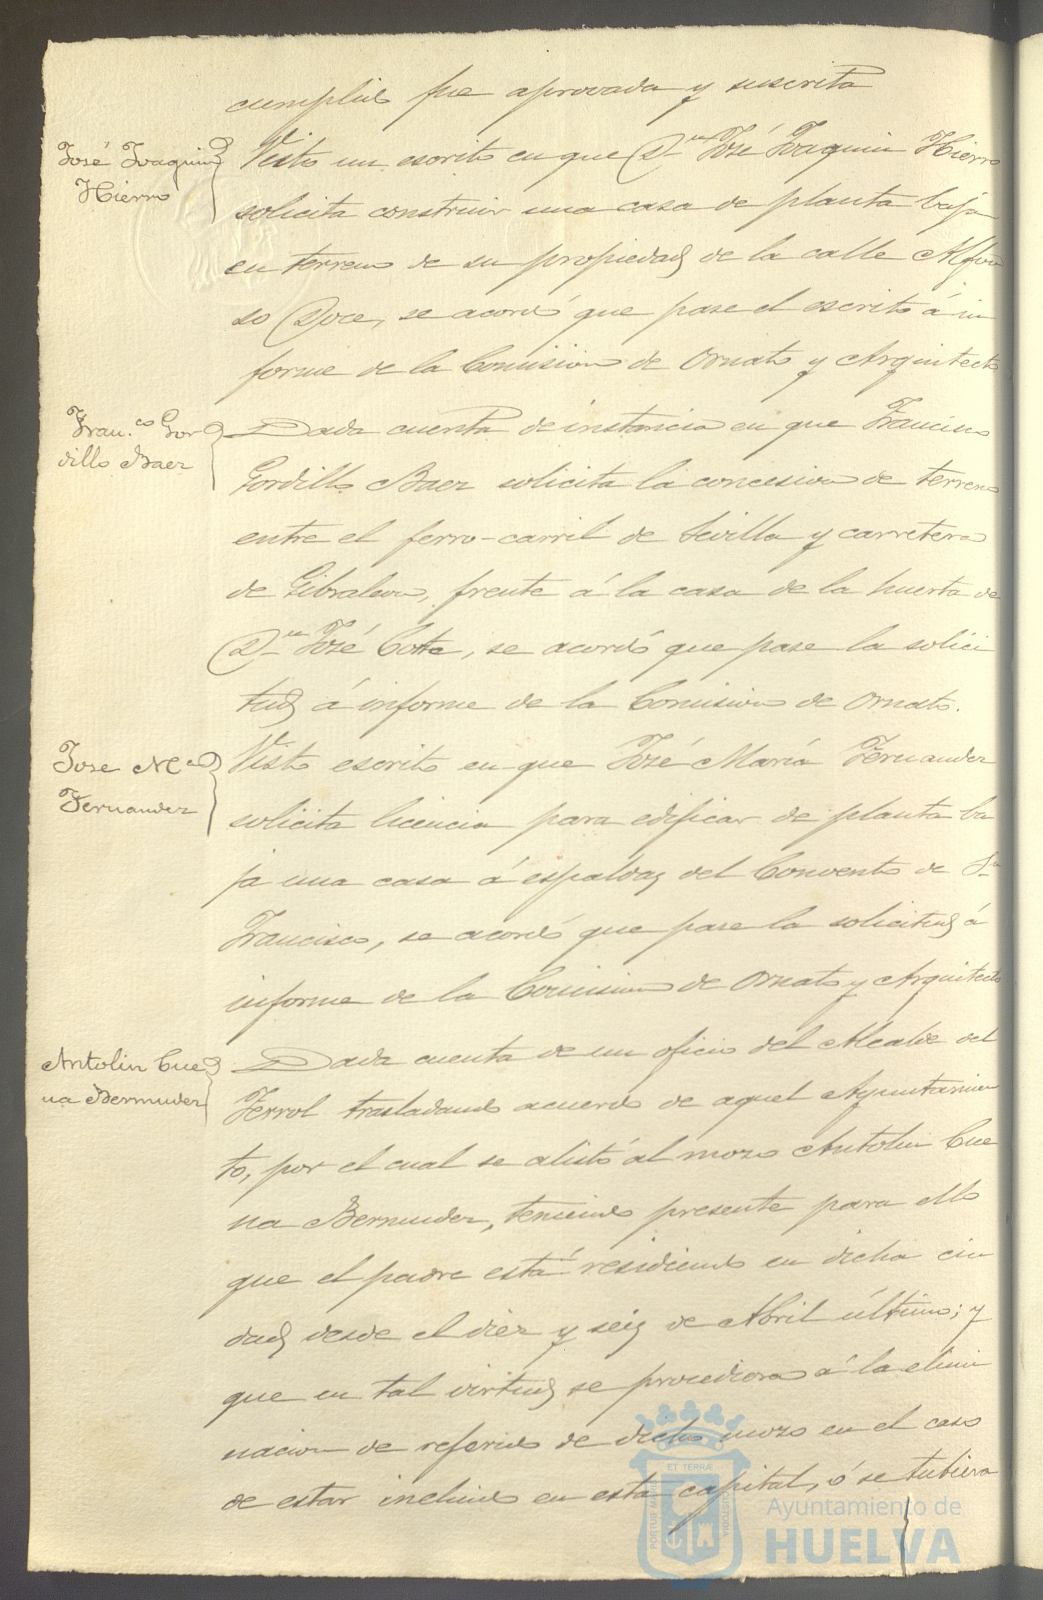 cumplido fue aprovada y suscrita
José Joaquin
Hierro
Visto un escrito en que Dn José Joaquin Hierro
solicita construir una casa de planta baja
en terreno de su propiedad de la calle Alfon
so Doce, se acordó que pase el escrito á in
forme de la Comision de Ornato y Arquitecto
Fran.co Gor
dillo Baez
Dada cuenta de instancia en que Francisco
Gordillo Baez solicita la concesion de terreno
entre el ferro-carril de Sevilla y carretera
de Gibraleon, frente á la casa de la huerta de
Dn José Cotta, se acordó que pase la solici
tud á informe de la Comision de Ornato.
Jose Ma
Fernandez
Visto escrito en que José María Fernandez
solicita licencia para edificar de planta ba
ja una casa á espaldas del Convento de Sn
Francisco, se acordó que pase la solicitud á
informe de la Comision de Ornato y Arquitecto
Antolin Cue
na Bermudez
Dada cuenta de un oficio del Alcalde del
Ferrol trasladando acuerdo de aquel Ayuntamien
to, por el cual se alistó al mozo Antolin Cue
na Bermudez, teniendo presente para ello
que el padre está residiendo en dicha ciu
dad desde el diez y seis de Abril último; y
que en tal virtud se procediera á la elimi
nacion de referido de dicho mozo en el caso
de estar incluido en esta capital, ó se tubiera
PORTUS MARIS
ET TERRÆ
CUSTODIA
Ayuntamiento de
HUELVA